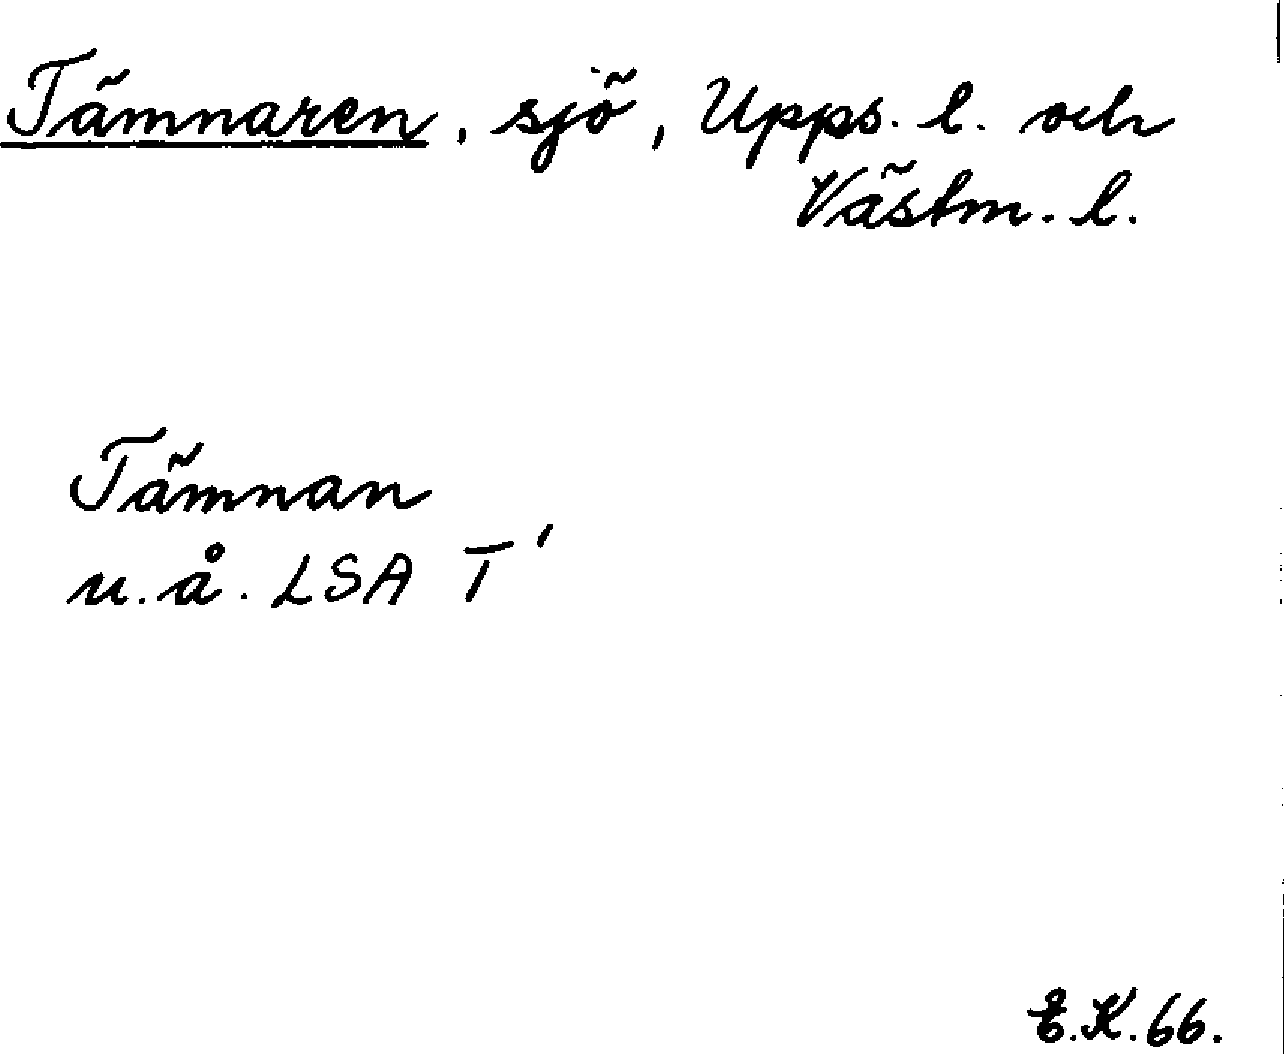 Tämnaren, sjö, Upps. l. och
Västm. l.
Tämnan
u. å. LSA T'
E.K. 66.